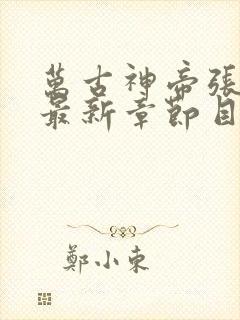 萬古神帝張
最新章節目
鄭小東